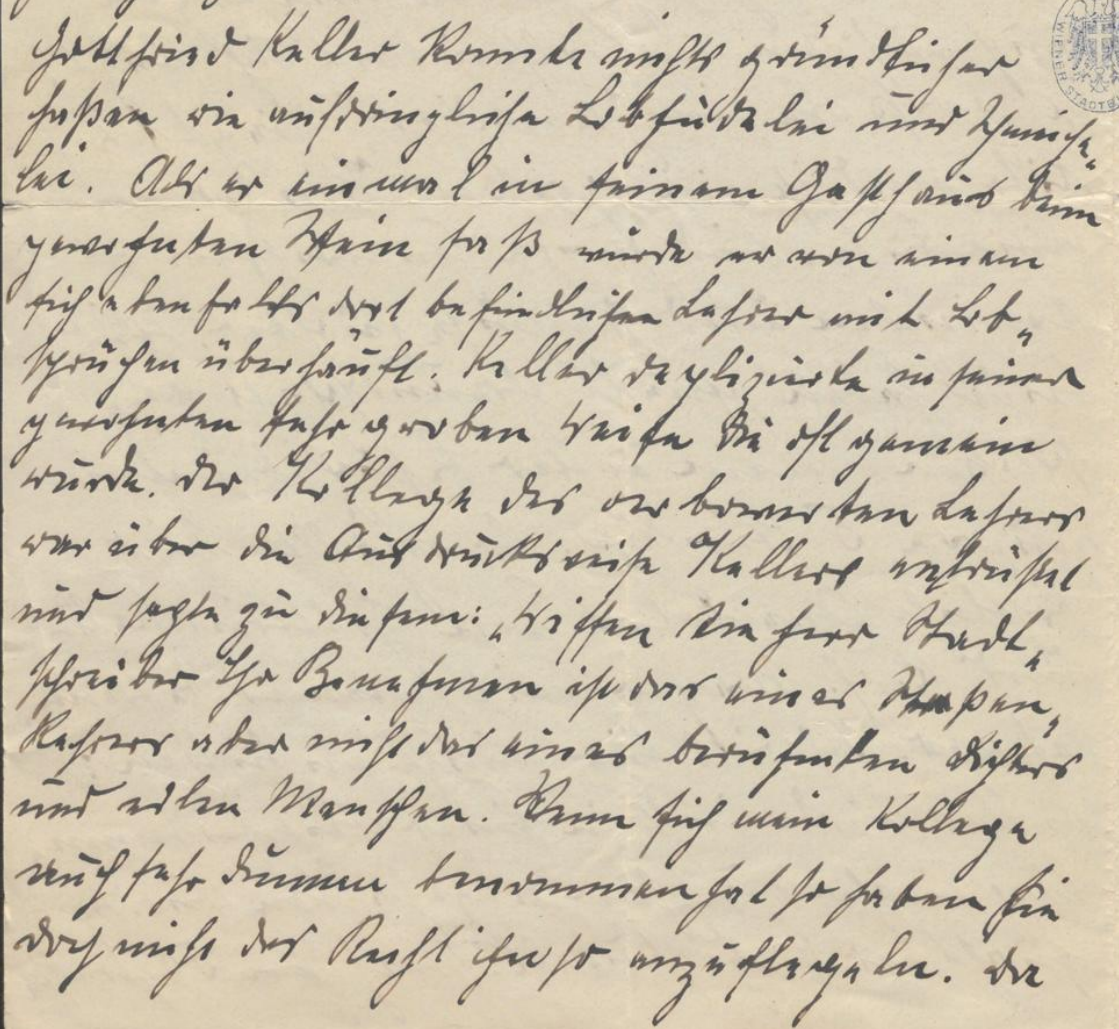 Gottfried Keller konnte nichts gründlicher
haßen wie aufdringliche Lobhudelei und Schmeiche„
lei. Als er einmal in seinem Gasthaus beim
gewohnten Wein saß wurde er von einem
sich ebenfalls dort befindlichen Lehrer mit Lob„
sprüchen überhäuft. Keller deplizierte in seiner
gewohnten sehr groben Weise die oft gemein
wurde. Der Kollege des Lehrers
war über die Ausdrucksweise Kellers entrüstet
und sagte zu diesem: „Wissen Sie Herr Stadt„
schreiber Ihr Benehmen ist das eines Straßen„
kehrers aber nicht das eines berühmten Dichters
und edlen Menschen. Wenn sich mein Kollege
auch sehr dumm benommen hat so haben Sie
doch nicht das Recht ihn so anzuflegeln. Da
WIENER STADTB